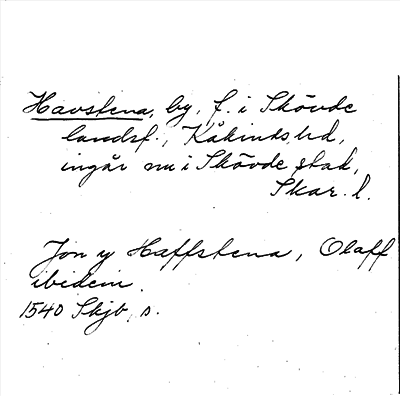 Havstena, by, f. i Skövde
landsf., Kåkinds hd,
ingår nu i Skövde stad,
Skar. l.
Jon y Haffstena, Olaff
ibidem.
1540 Skjb, s.